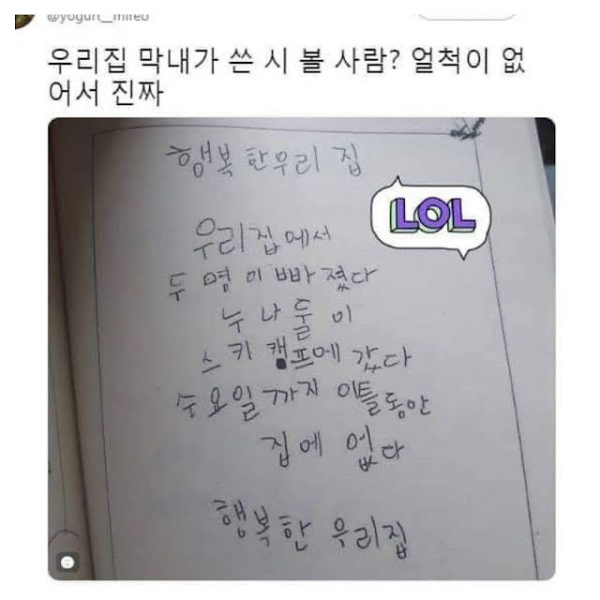 @yogurt__mireo
우리집 막내가 쓴 시 볼 사람? 얼척이 없
어서 진짜
행복한우리 집
LOL
우리집에서
두 명이 빠졌다
누나둘이
스키캠프에 갔다
수요일까지 이틀동안
집에 없다
행복한 우리집